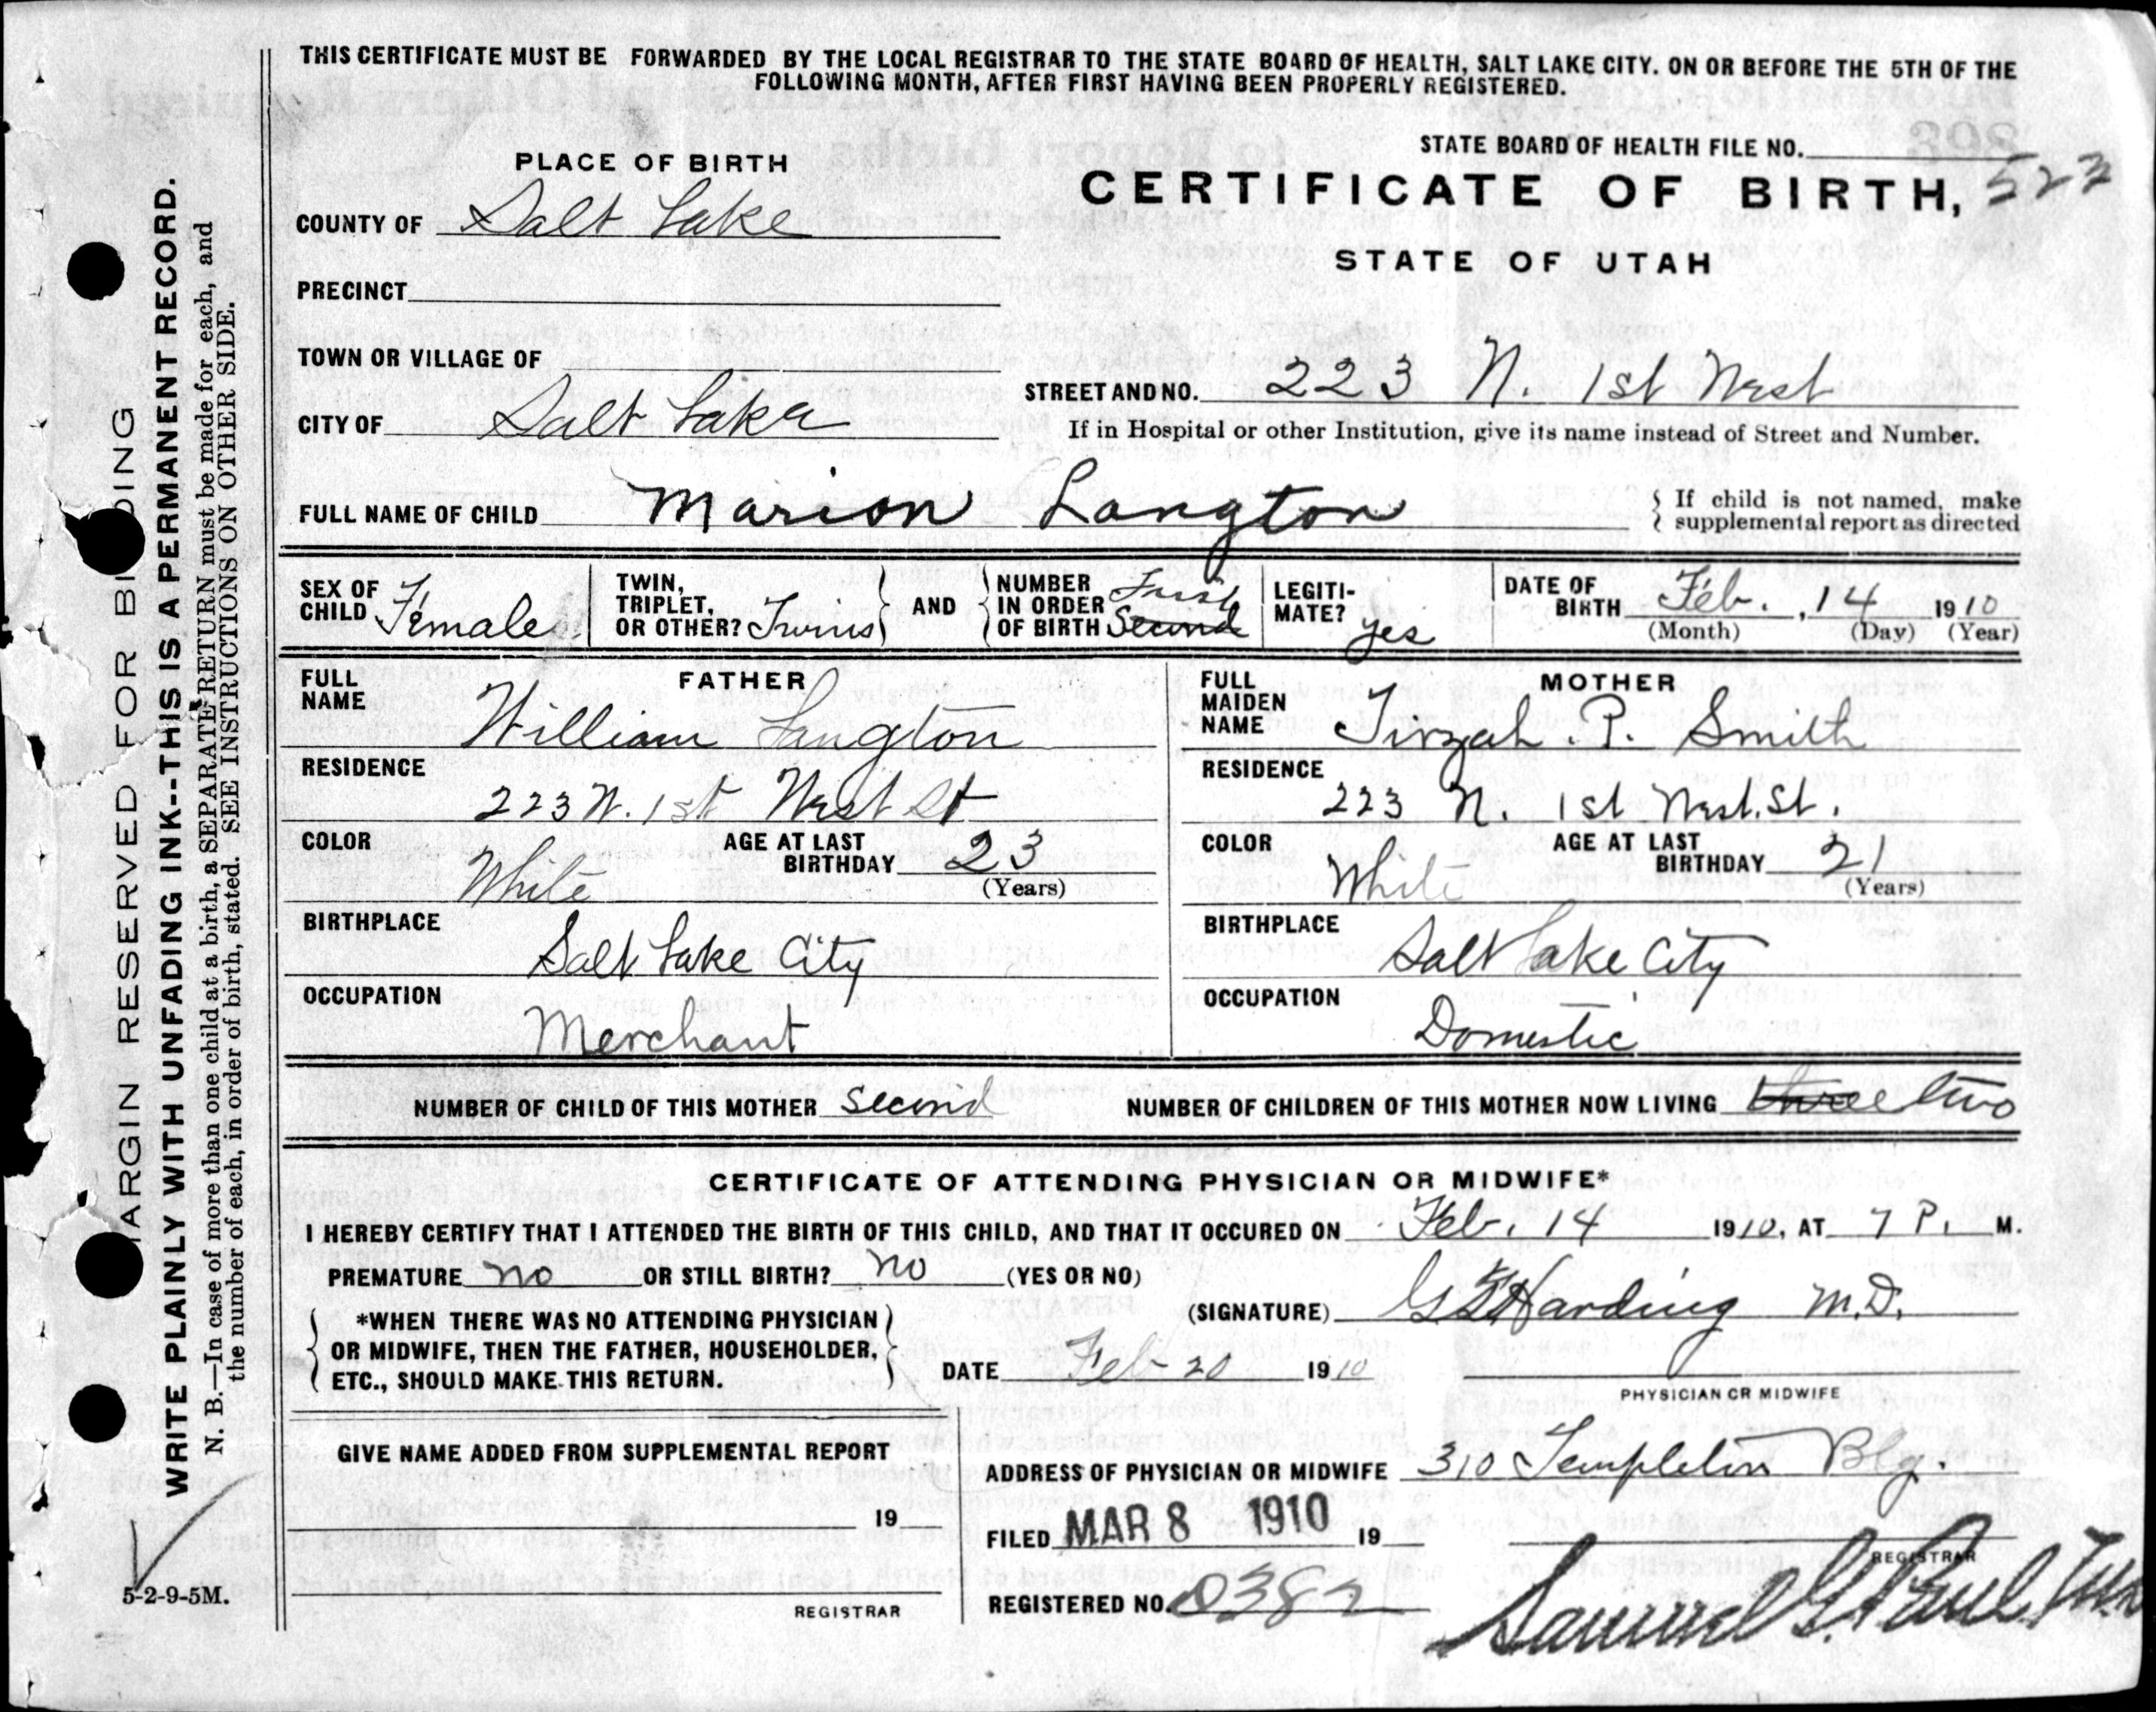 THIS CERTIFICATE MUST BE FORWARDED BY THE LOCAL REGISTRAR TO THE STATE BOARD OF HEALTH, SALT LAKE CITY. ON OR BEFORE THE 5TH OF THE
FOLLOWING MONTH, AFTER FIRST HAVING BEEN PROPERLY REGISTERED.
STATE BOARD OF HEALTH FILE NO.
PLACE OF BIRTH
CERTIFICATE OF BIRTH, 523
COUNTY OF Salt Lake
STATE OF UTAH
PRECINCT
TOWN OR VILLAGE OF
STREET AND NO. 223 N. 1st West
CITY OF Salt Lake
If in Hospital or other Institution, give its name instead of Street and Number.
FULL NAME OF CHILD Marion Langton
If child is not named, make
supplemental report as directed
SEX OF CHILD Female
TWIN, TRIPLET, OR OTHER? Twins
AND
NUMBER IN ORDER OF BIRTH First Second
LEGITI-MATE? yes
DATE OF BIRTH Feb. , 14 1910
(Month) (Day) (Year)
FATHER
FULL NAME William Langton
RESIDENCE
223 N. 1st West St
COLOR White
AGE AT LAST BIRTHDAY 23
(Years)
BIRTHPLACE
Salt Lake City
OCCUPATION
Merchant
MOTHER
FULL MAIDEN NAME Tirzah. P. Smith
RESIDENCE
223 N. 1st West. St.
COLOR White
AGE AT LAST BIRTHDAY 21
(Years)
BIRTHPLACE
Salt Lake City
OCCUPATION
Domestic
NUMBER OF CHILD OF THIS MOTHER Second NUMBER OF CHILDREN OF THIS MOTHER NOW LIVING three two
CERTIFICATE OF ATTENDING PHYSICIAN OR MIDWIFE*
I HEREBY CERTIFY THAT I ATTENDED THE BIRTH OF THIS CHILD, AND THAT IT OCCURED ON Feb. 14 1910, AT 7 P. M.
PREMATURE no OR STILL BIRTH? no (YES OR NO)
*WHEN THERE WAS NO ATTENDING PHYSICIAN
OR MIDWIFE, THEN THE FATHER, HOUSEHOLDER,
ETC., SHOULD MAKE THIS RETURN.
(SIGNATURE) Harding M.D.
DATE Feb 20 1910
PHYSICIAN OR MIDWIFE
GIVE NAME ADDED FROM SUPPLEMENTAL REPORT
19
REGISTRAR
ADDRESS OF PHYSICIAN OR MIDWIFE 310 Templeton Blg.
FILED MAR 8 1910 19
REGISTRAR
REGISTERED NO. 0382
Samuel G. Paul
MARGIN RESERVED FOR BINDING
WRITE PLAINLY WITH UNFADING INK--THIS IS A PERMANENT RECORD.
N. B.—In case of more than one child at a birth, a SEPARATE RETURN must be made for each, and
the number of each, in order of birth, stated. SEE INSTRUCTIONS ON OTHER SIDE.
5-2-9-5M.